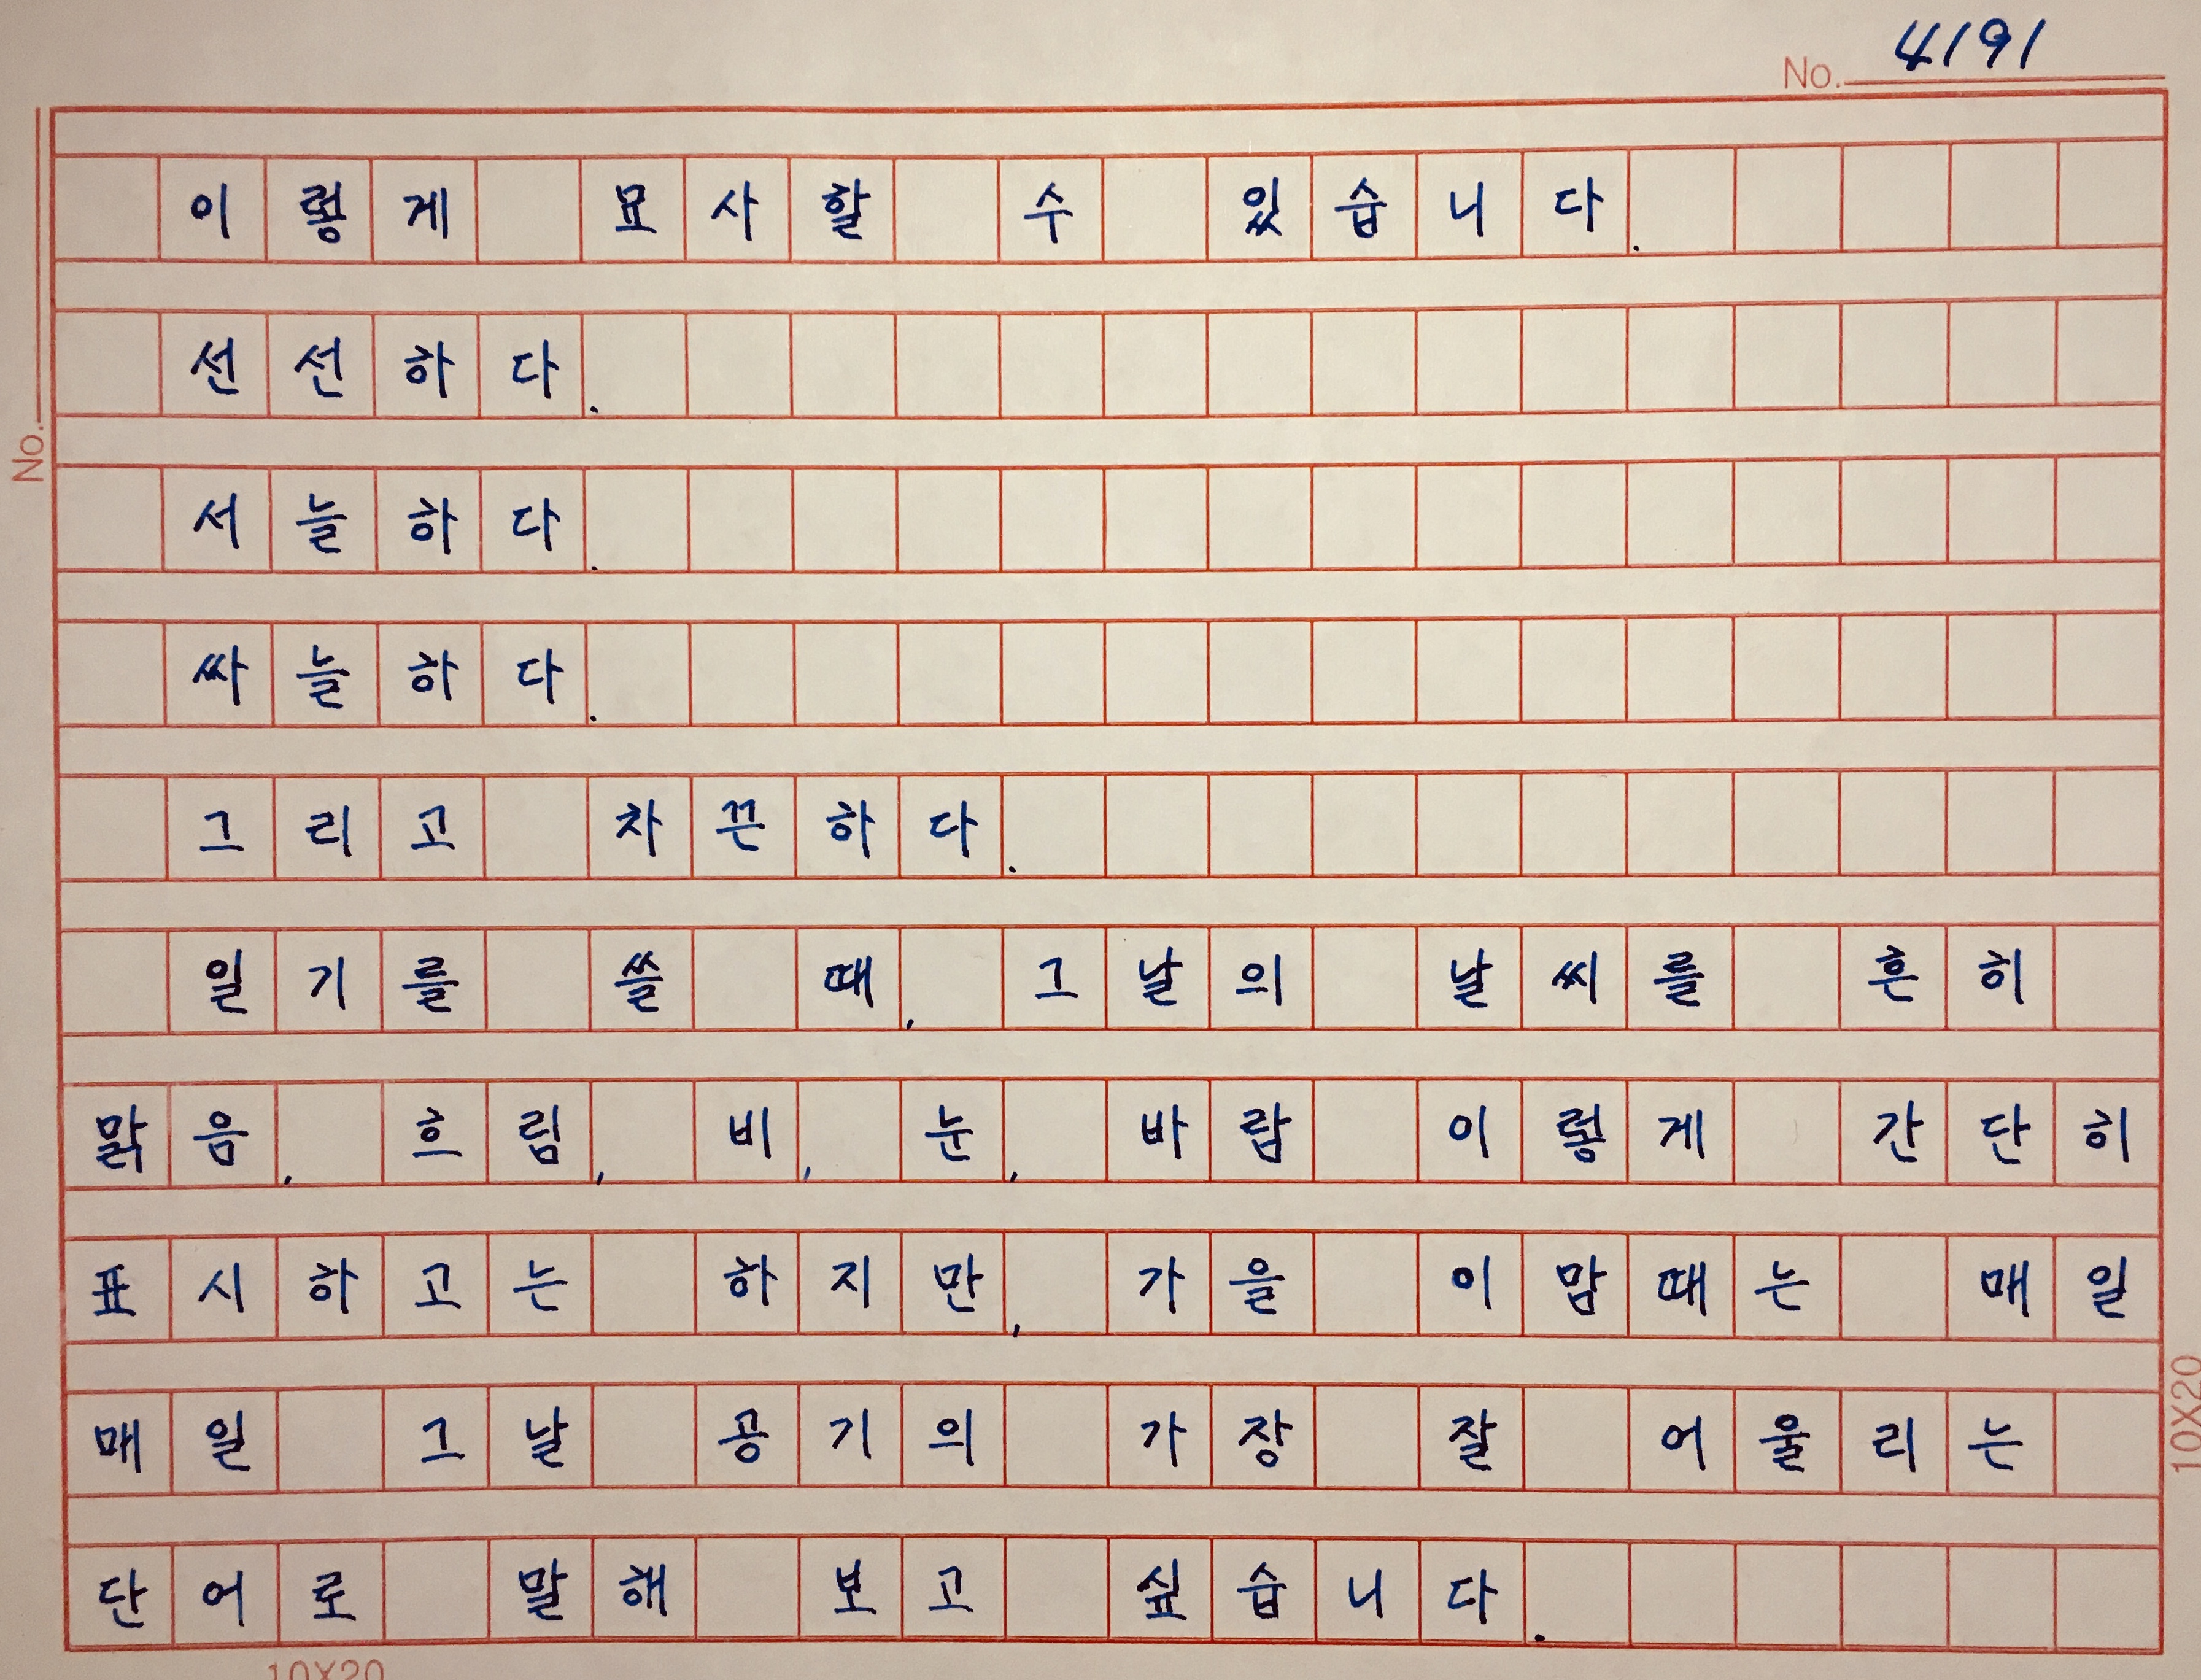 No. 4191
이렇게 묘사할 수 있습니다.
선선하다.
서늘하다.
싸늘하다.
그리고 차끈하다.
일기를 쓸 때, 그날의 날씨를 흔히
맑음, 흐림, 비, 눈, 바람 이렇게 간단히
표시하고는 하지만, 가을 이맘때는 매일
매일 그날 공기의 가장 잘 어울리는
단어로 말해 보고 싶습니다.
No.
10X20
10X20